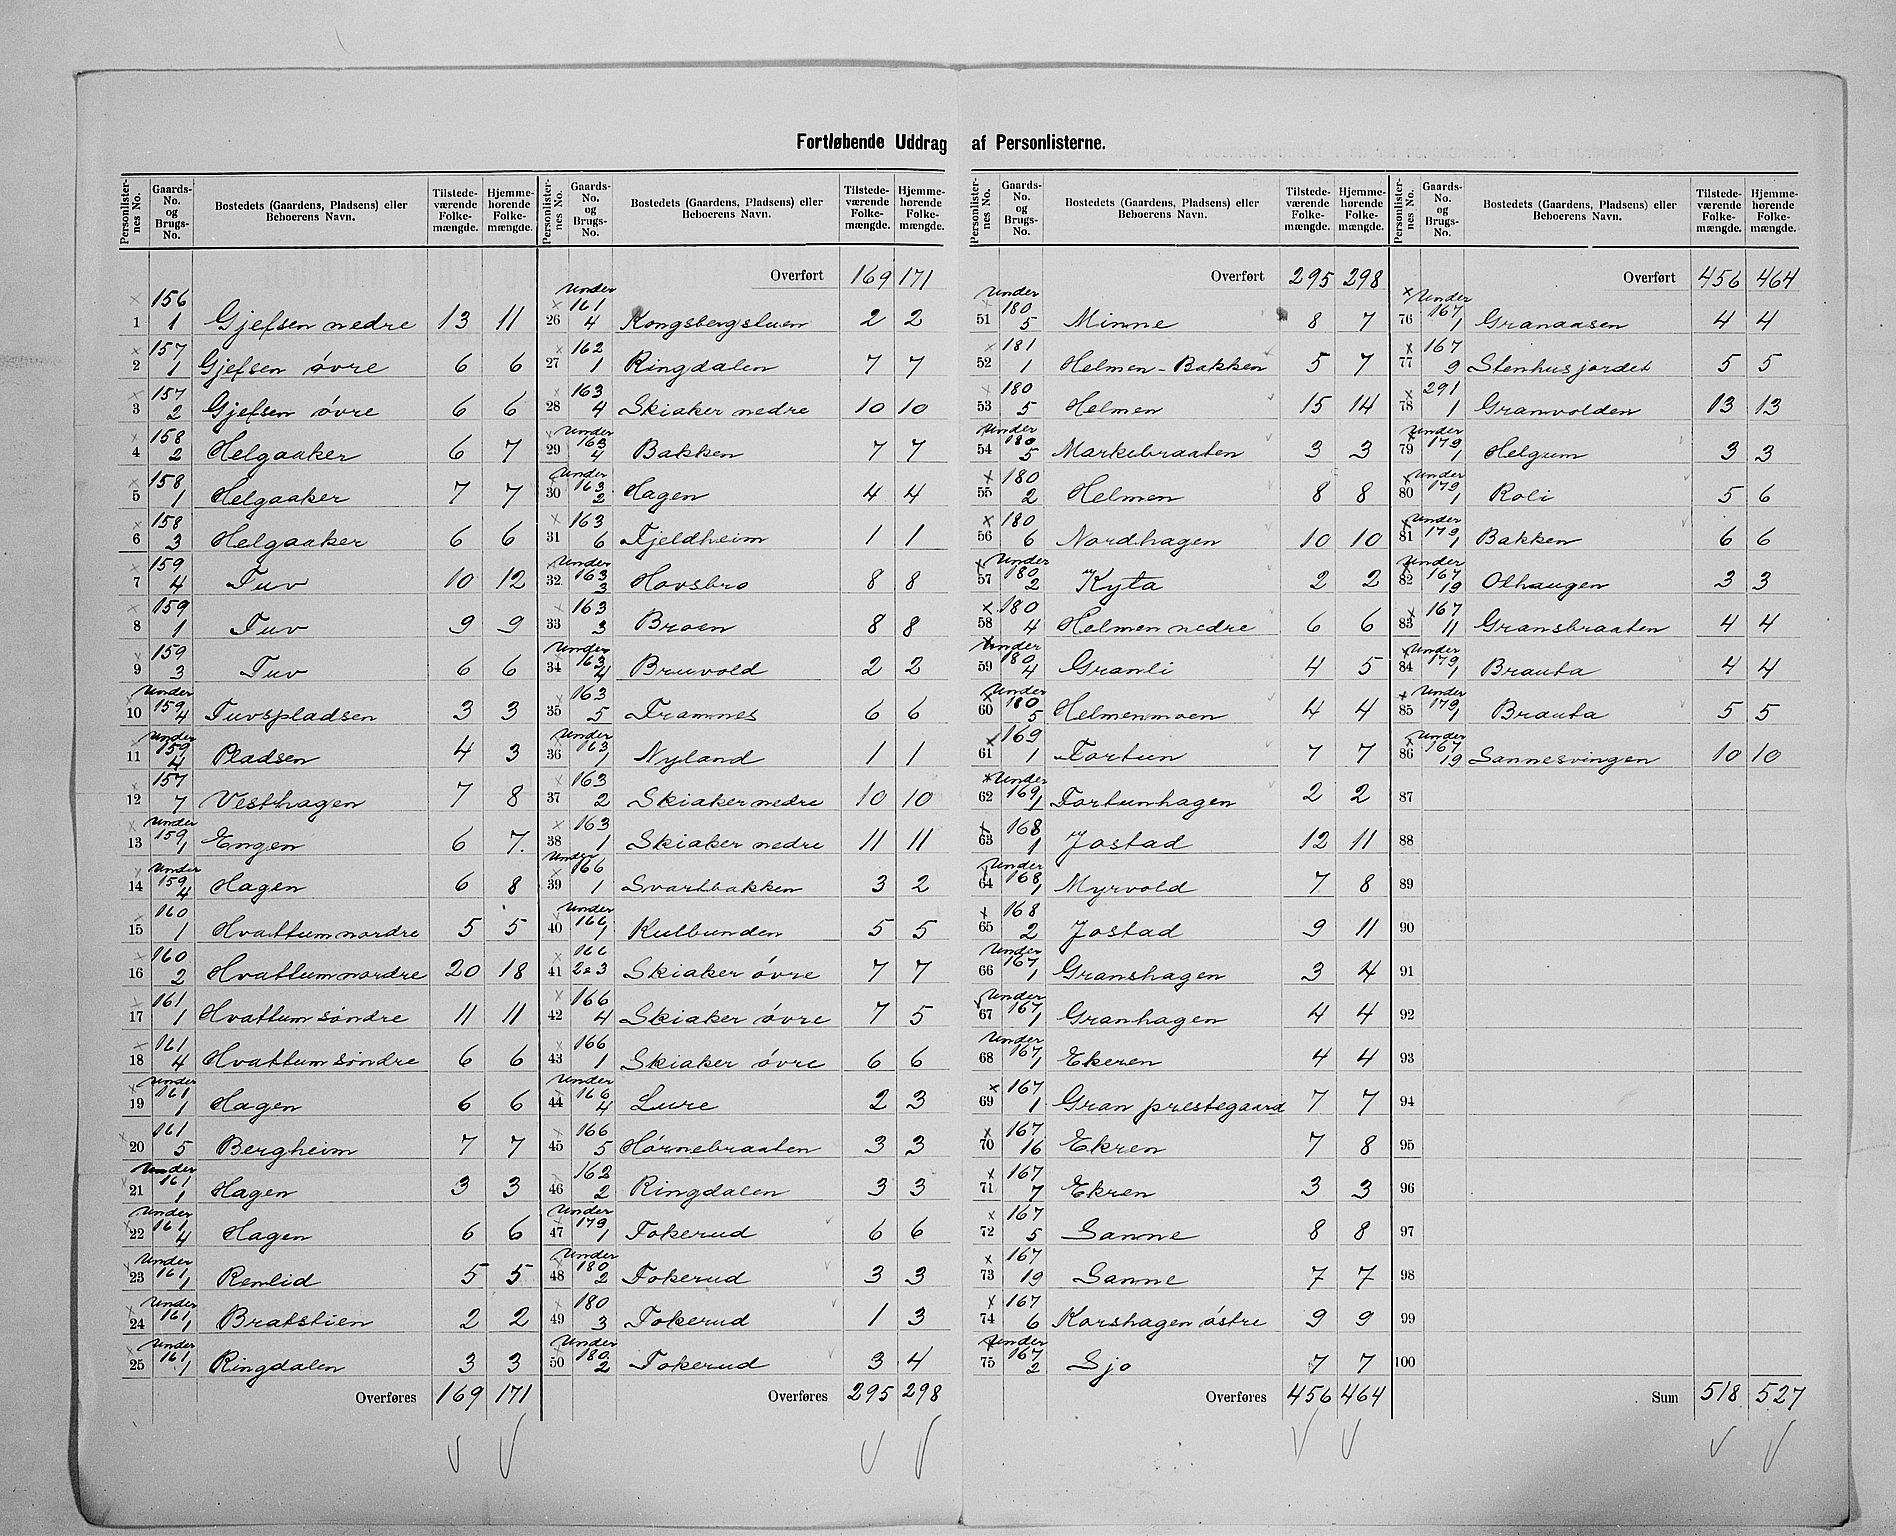 Fortløbende Uddrag af Personlisterne.
Personlisternes No. | Gaards-No. og Brugs-No. | Bostedets (Gaardens, Pladsens) eller Beboerens Navn. | Tilstedeværende Folkemængde. | Hjemmehørende Folkemængde.
1 156 1 Gjefsen nedre 13 11
2 157 1 Gjefsen øvre 6 6
3 157 2 Gjefsen øvre 6 6
4 158 2 Helgaaker 6 7
5 158 1 Helgaaker 7 7
6 158 3 Helgaaker 6 6
7 159 4 Tuv 10 12
8 159 1 Tuv 9 9
9 159 3 Tuv 6 6
10 Under 159 4 Tuvspladsen 3 3
11 Under 159 4 Pladsen 4 3
12 157 7 Vesthagen 7 8
13 Under 159 1 Engen 6 7.
14 Under 159 4 Hagen 6 8
15 160 1 Hvattum nordre 5 5
16 160 2 Hvattum nordre 20 18
17 161 1 Hvattum søndre 11 11
18 161 4 Hvattum søndre 6 6
19 Under 161 1 Hagen 6 6
20 161 5 Bergheim 7 7
21 Under 161 1 Hagen 3 3
22 Under 161 4 Hagen 6 6
23 Under 161 1 Remlid 5 5
24 Under 161 1 Bratstien 2 2
25 Under 161 1 Ringdalen 3 3
Overføres 169 171
Personlisternes No. | Gaards-No. og Brugs-No. | Bostedets (Gaardens, Pladsens) eller Beboerens Navn. | Tilstedeværende Folkemængde. | Hjemmehørende Folkemængde.
Overført 169 171
26 Under 161 4 Kongsbergstuen 2 2
27 162 1 Ringdalen 7 7
28 163 4 Skiaker nedre 10 10
29 Under 163 4 Bakken 7 7
30 Under 163 2 Hagen 4 4
31 163 6 Fjeldheim 1 1
32 Under 163 3 Hovsbro 8 8
33 163 3 Broen 8 8
34 Under 163 4 Bruvold 2 2
35 163 5 Framnes 6 6
36 Under 163 1 Nyland 1 1
37 163 2 Skiaker nedre 10 10
38 163 1 Skiaker nedre 11 11
39 Under 166 1 Svartbakken 3 2
40 Under 166 1 Kulbunden 5 5
41 166 2 & 3 Skiaker øvre 7 7
42 166 4 Skiaker øvre 7 5
43 166 1 Skiaker øvre 6 6
44 Under 166 4 Lure 2 3
45 166 5 Hørnebraaten 3 3
46 162 2 Ringdalen 3 3
47 Under 179 1 Tokerud 6 6
48 Under 180 2 Tokerud 3 3
49 180 3 Tokerud 1 3
50 Under 180 2 Tokerud 3 4
Overføres 295 298
Personlisternes No. | Gaards-No. og Brugs-No. | Bostedets (Gaardens, Pladsens) eller Beboerens Navn. | Tilstedeværende Folkemængde. | Hjemmehørende Folkemængde.
Overført 295 298
51 Under 180 5 Minne 8 7
52 181 1 Helmen-Bakken 5 7
53 180 5 Helmen 15 14
54 Under 180 5 Markebraaten 3 3
55 180 2 Helmen 8 8
56 180 6 Nordhagen 10 10
57 Under 180 2 Kyta 2 2
58 180 4 Helmen nedre 6 6
59 Under 180 4 Granli 4 5
60 Under 180 5 Helmenmoen 4 4
61 169 1 Fortun 7 7
62 Under 169 1 Fortunhagen 2 2
63 168 1 Jostad 12 11
64 Under 168 1 Myrvold 7 8
65 168 2 Jostad 9 11
66 Under 167 1 Granshagen 3 4
67 Under 167 1 Granhagen 4 4
68 Under 167 1 Ekeren 4 4
69 167 1 Gran prestegaard 7 7
70 167 16 Ekren 7 8
71 167 7 Ekren 3 3
72 167 5 Sanne 8 8
73 167 19 Sanne 7 7
74 167 6 Korshagen østre 9 9
75 Under 167 2 Sjo 7 7
Overføres 456 464
Personlisternes No. | Gaards-No. og Brugs-No. | Bostedets (Gaardens, Pladsens) eller Beboerens Navn. | Tilstedeværende Folkemængde. | Hjemmehørende Folkemængde.
Overført 456 464
76 Under 167 1 Granaasen 4 4
77 167 9 Stenhusjordet 5 5
78 291 1 Granvolden 13 13
79 Under 179 1 Helgum 3 3
80 Under 179 1 Roli 5 6
81 Under 179 1 Bakken 6 6
82 Under 167 19 Olhaugen 3 3
83 167 11 Gransbraaten 4 4
84 Under 179 1 Brauta 4 4
85 Under 179 1 Brauta 5 5
86 Under 167 19 Sannesvingen 10 10
87
88
89
90
91
92
93
94
95
96
97
98
99
100
Sum 518 527